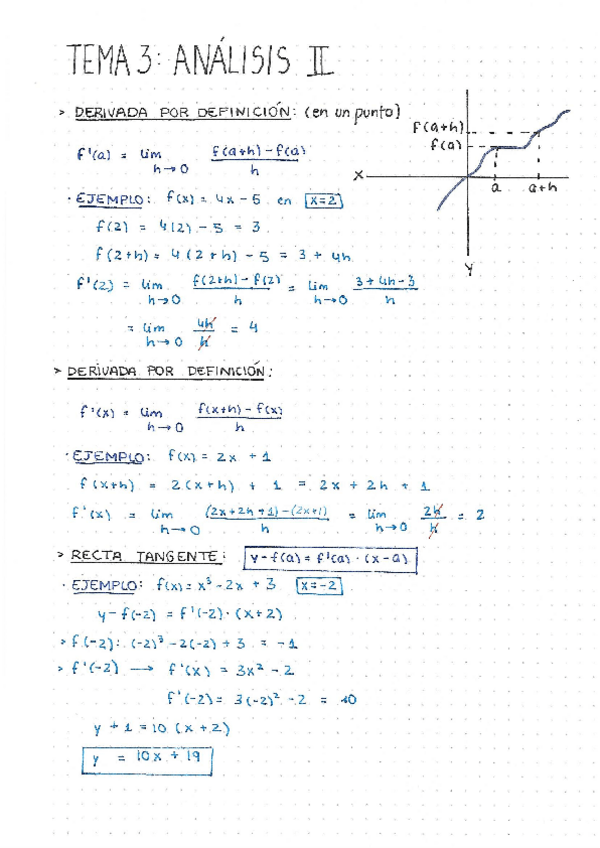 TEMA 3: ANÁLISIS II
> DERIVADA POR DEFINICIÓN: (en un punto)
f'(a) = lim h→0 f(a+h)-f(a) / h
f(a+h)
f(a)
X
a
a+h
Y
· EJEMPLO: f(x) = 4x - 5 en x=2
f(2) = 4(2) - 5 = 3
f(2+h) = 4(2+h) - 5 = 3 + 4h
f'(2) = lim h→0 f(2+h)-f(2) / h = lim h→0 3+4h-3 / h
= lim h→0 4h / h = 4
> DERIVADA POR DEFINICIÓN:
f'(x) = lim h→0 f(x+h)-f(x) / h
· EJEMPLO: f(x) = 2x + 1
f(x+h) = 2(x+h) + 1 = 2x + 2h + 1
f'(x) = lim h→0 (2x+2h+1)-(2x+1) / h = lim h→0 2h / h = 2
> RECTA TANGENTE: y-f(a) = f'(a) · (x-a)
· EJEMPLO: f(x) = x³ - 2x + 3 x=-2
y-f(-2) = f'(-2) · (x+2)
> f(-2): (-2)³ - 2(-2) + 3 = -1
> f'(-2) → f'(x) = 3x² - 2
f'(-2) = 3(-2)² - 2 = 10
y + 1 = 10 (x+2)
y = 10x + 19